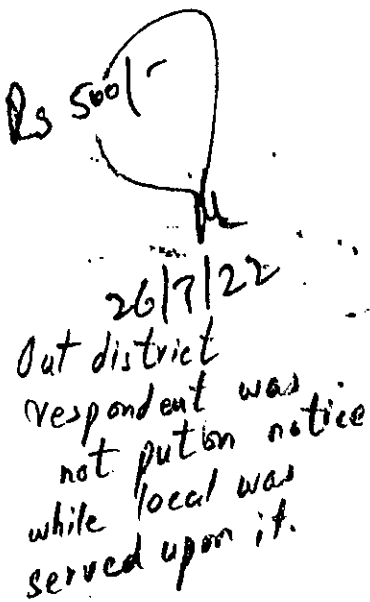 Rs 500/-
26/7/22
Out district
respondent was
not put on notice
while local was
served upon it.